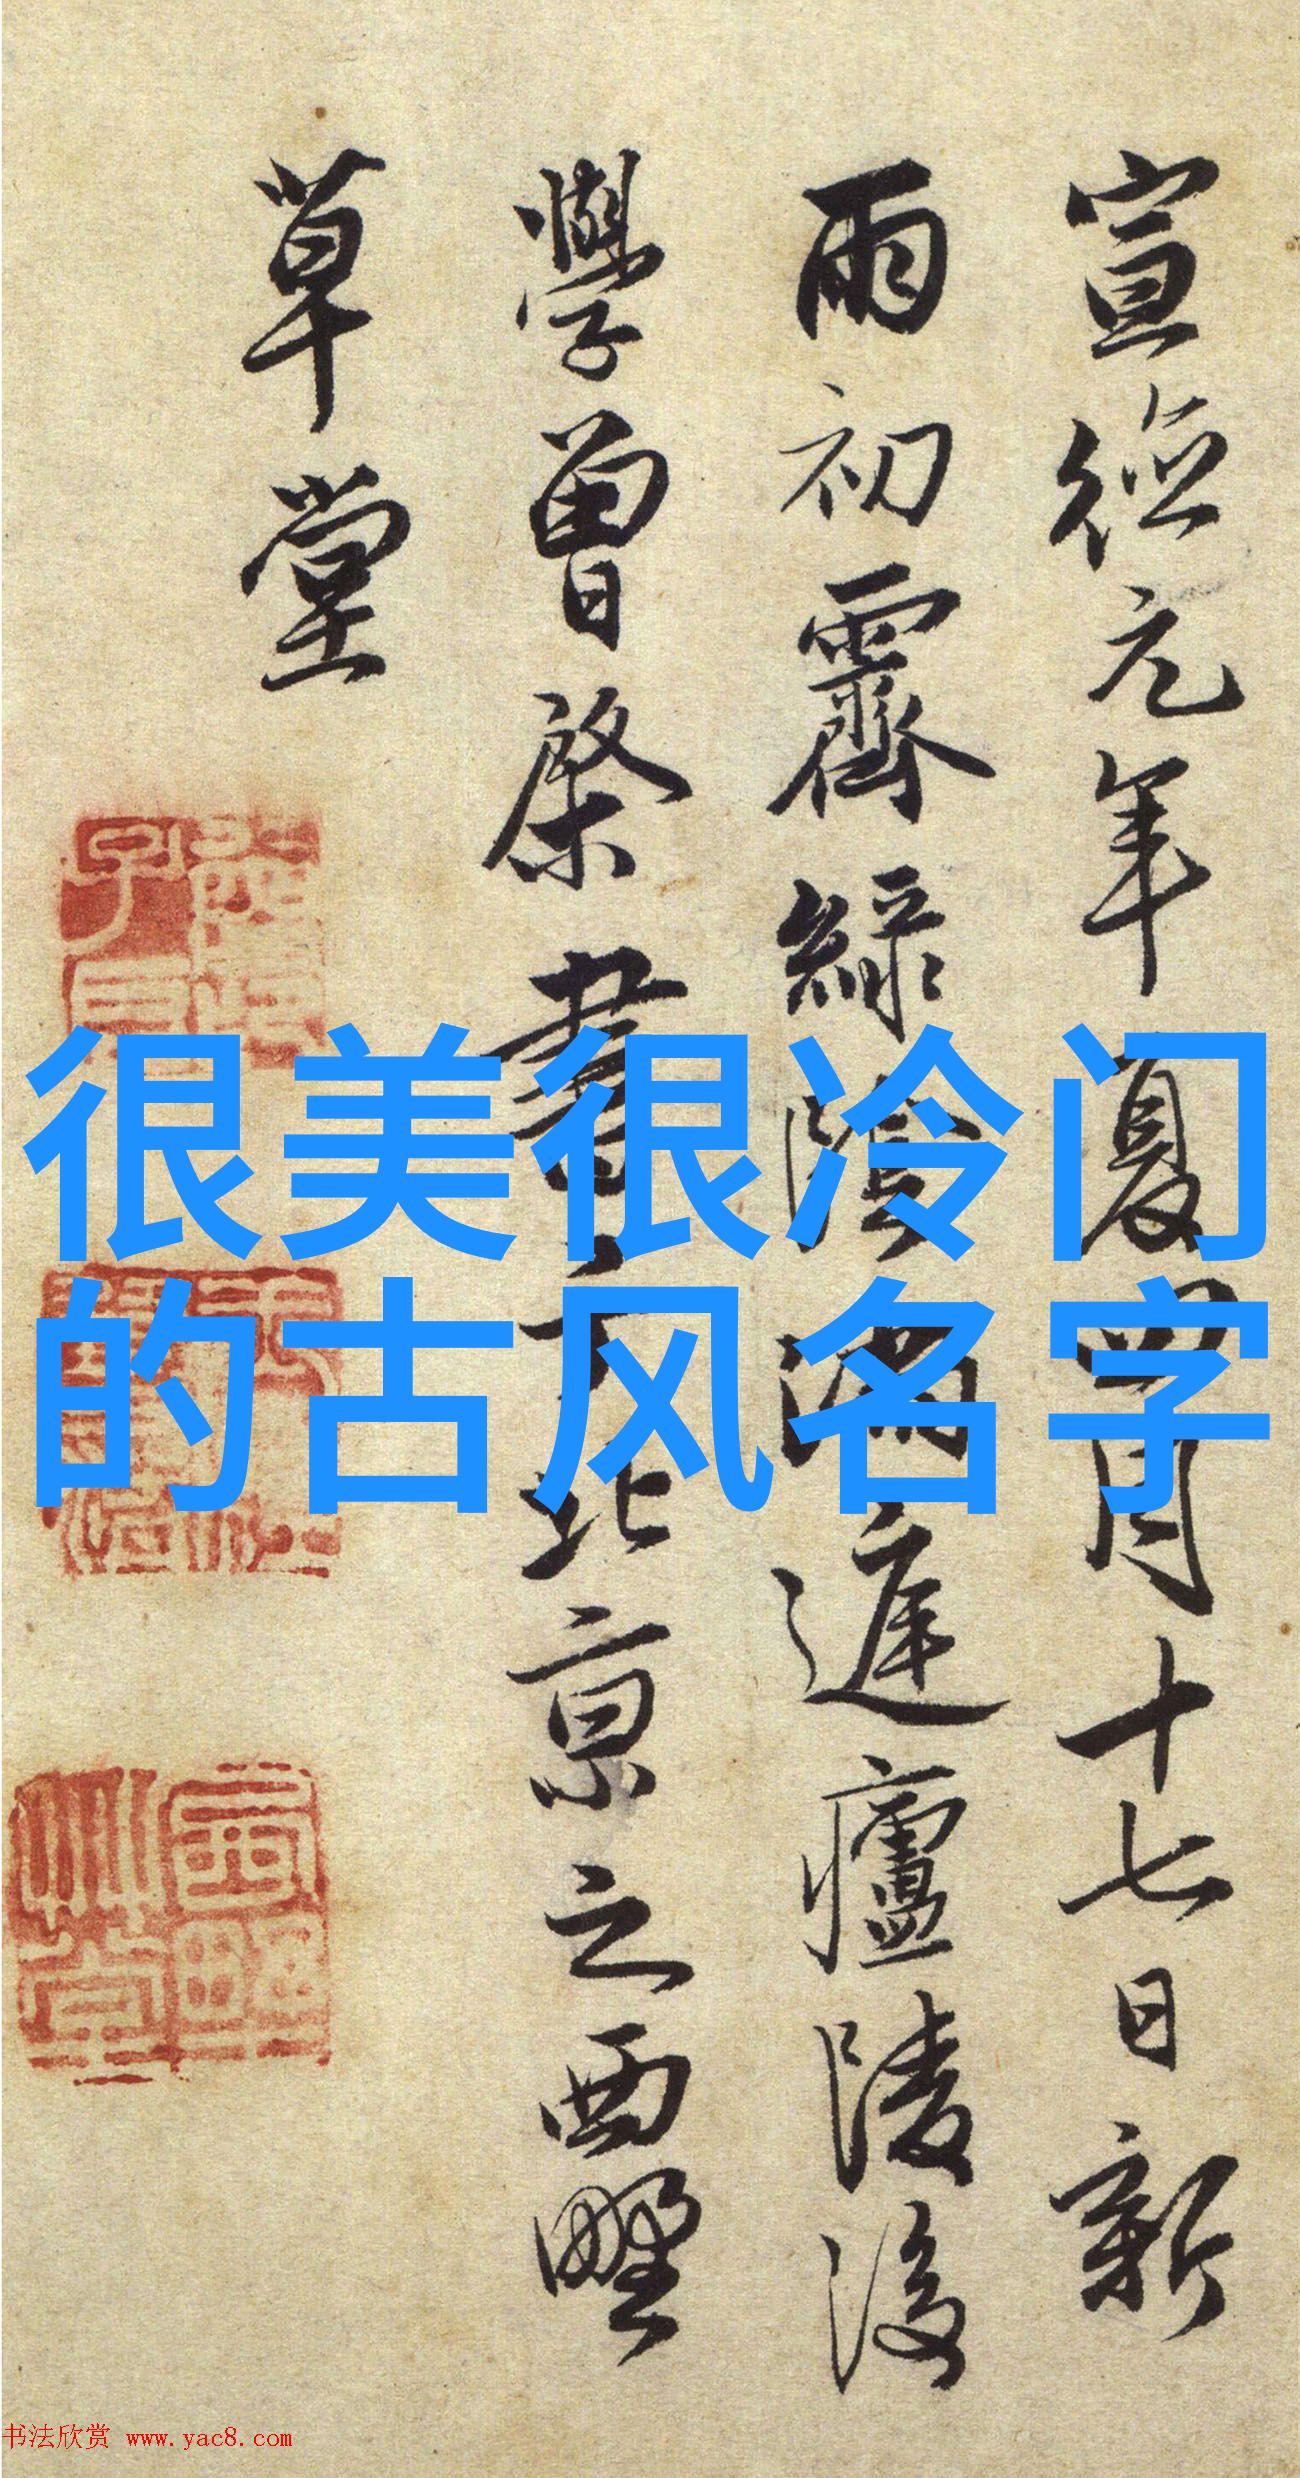 宣德元年夏四月十七日新
雨初霽綠陰滿庭廬陵後
學曾棨書于北京之西墅
草堂
很美很冷门
的古风名字
书法欣赏 www.yac8.com